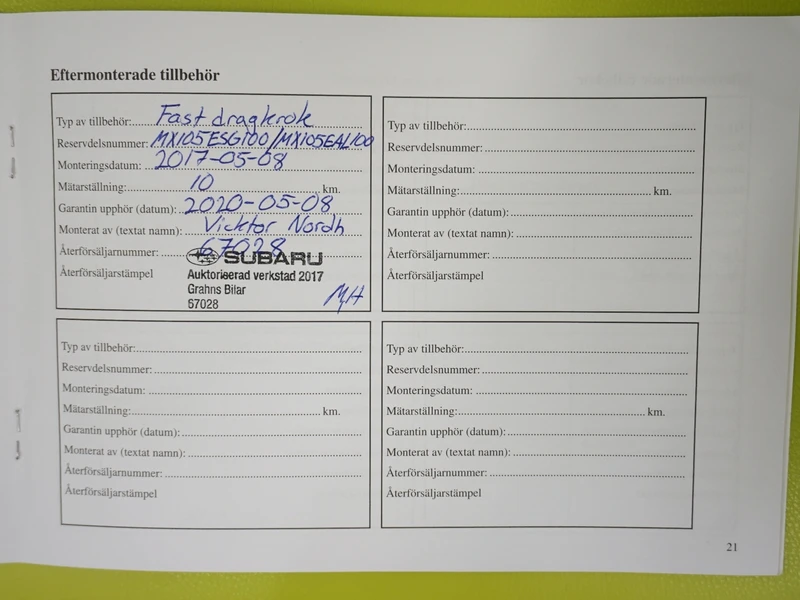 Eftermonterade tillbehör
Typ av tillbehör: Fast dragkrok
Reservdelsnummer: MX105ESG100/MX105EAL100
Monteringsdatum: 2017-05-08
Mätarställning: 10 km.
Garantin upphör (datum): 2020-05-08
Monterat av (textat namn): Vicktor Nordh
Återförsäljarnummer: 67028
Återförsäljarstämpel
SUBARU
Auktoriserad verkstad 2017
Grahns Bilar
67028
MH
Typ av tillbehör:
Reservdelsnummer:
Monteringsdatum:
Mätarställning: km.
Garantin upphör (datum):
Monterat av (textat namn):
Återförsäljarnummer:
Återförsäljarstämpel
Typ av tillbehör:
Reservdelsnummer:
Monteringsdatum:
Mätarställning: km.
Garantin upphör (datum):
Monterat av (textat namn):
Återförsäljarnummer:
Återförsäljarstämpel
Typ av tillbehör:
Reservdelsnummer:
Monteringsdatum:
Mätarställning: km.
Garantin upphör (datum):
Monterat av (textat namn):
Återförsäljarnummer:
Återförsäljarstämpel
21